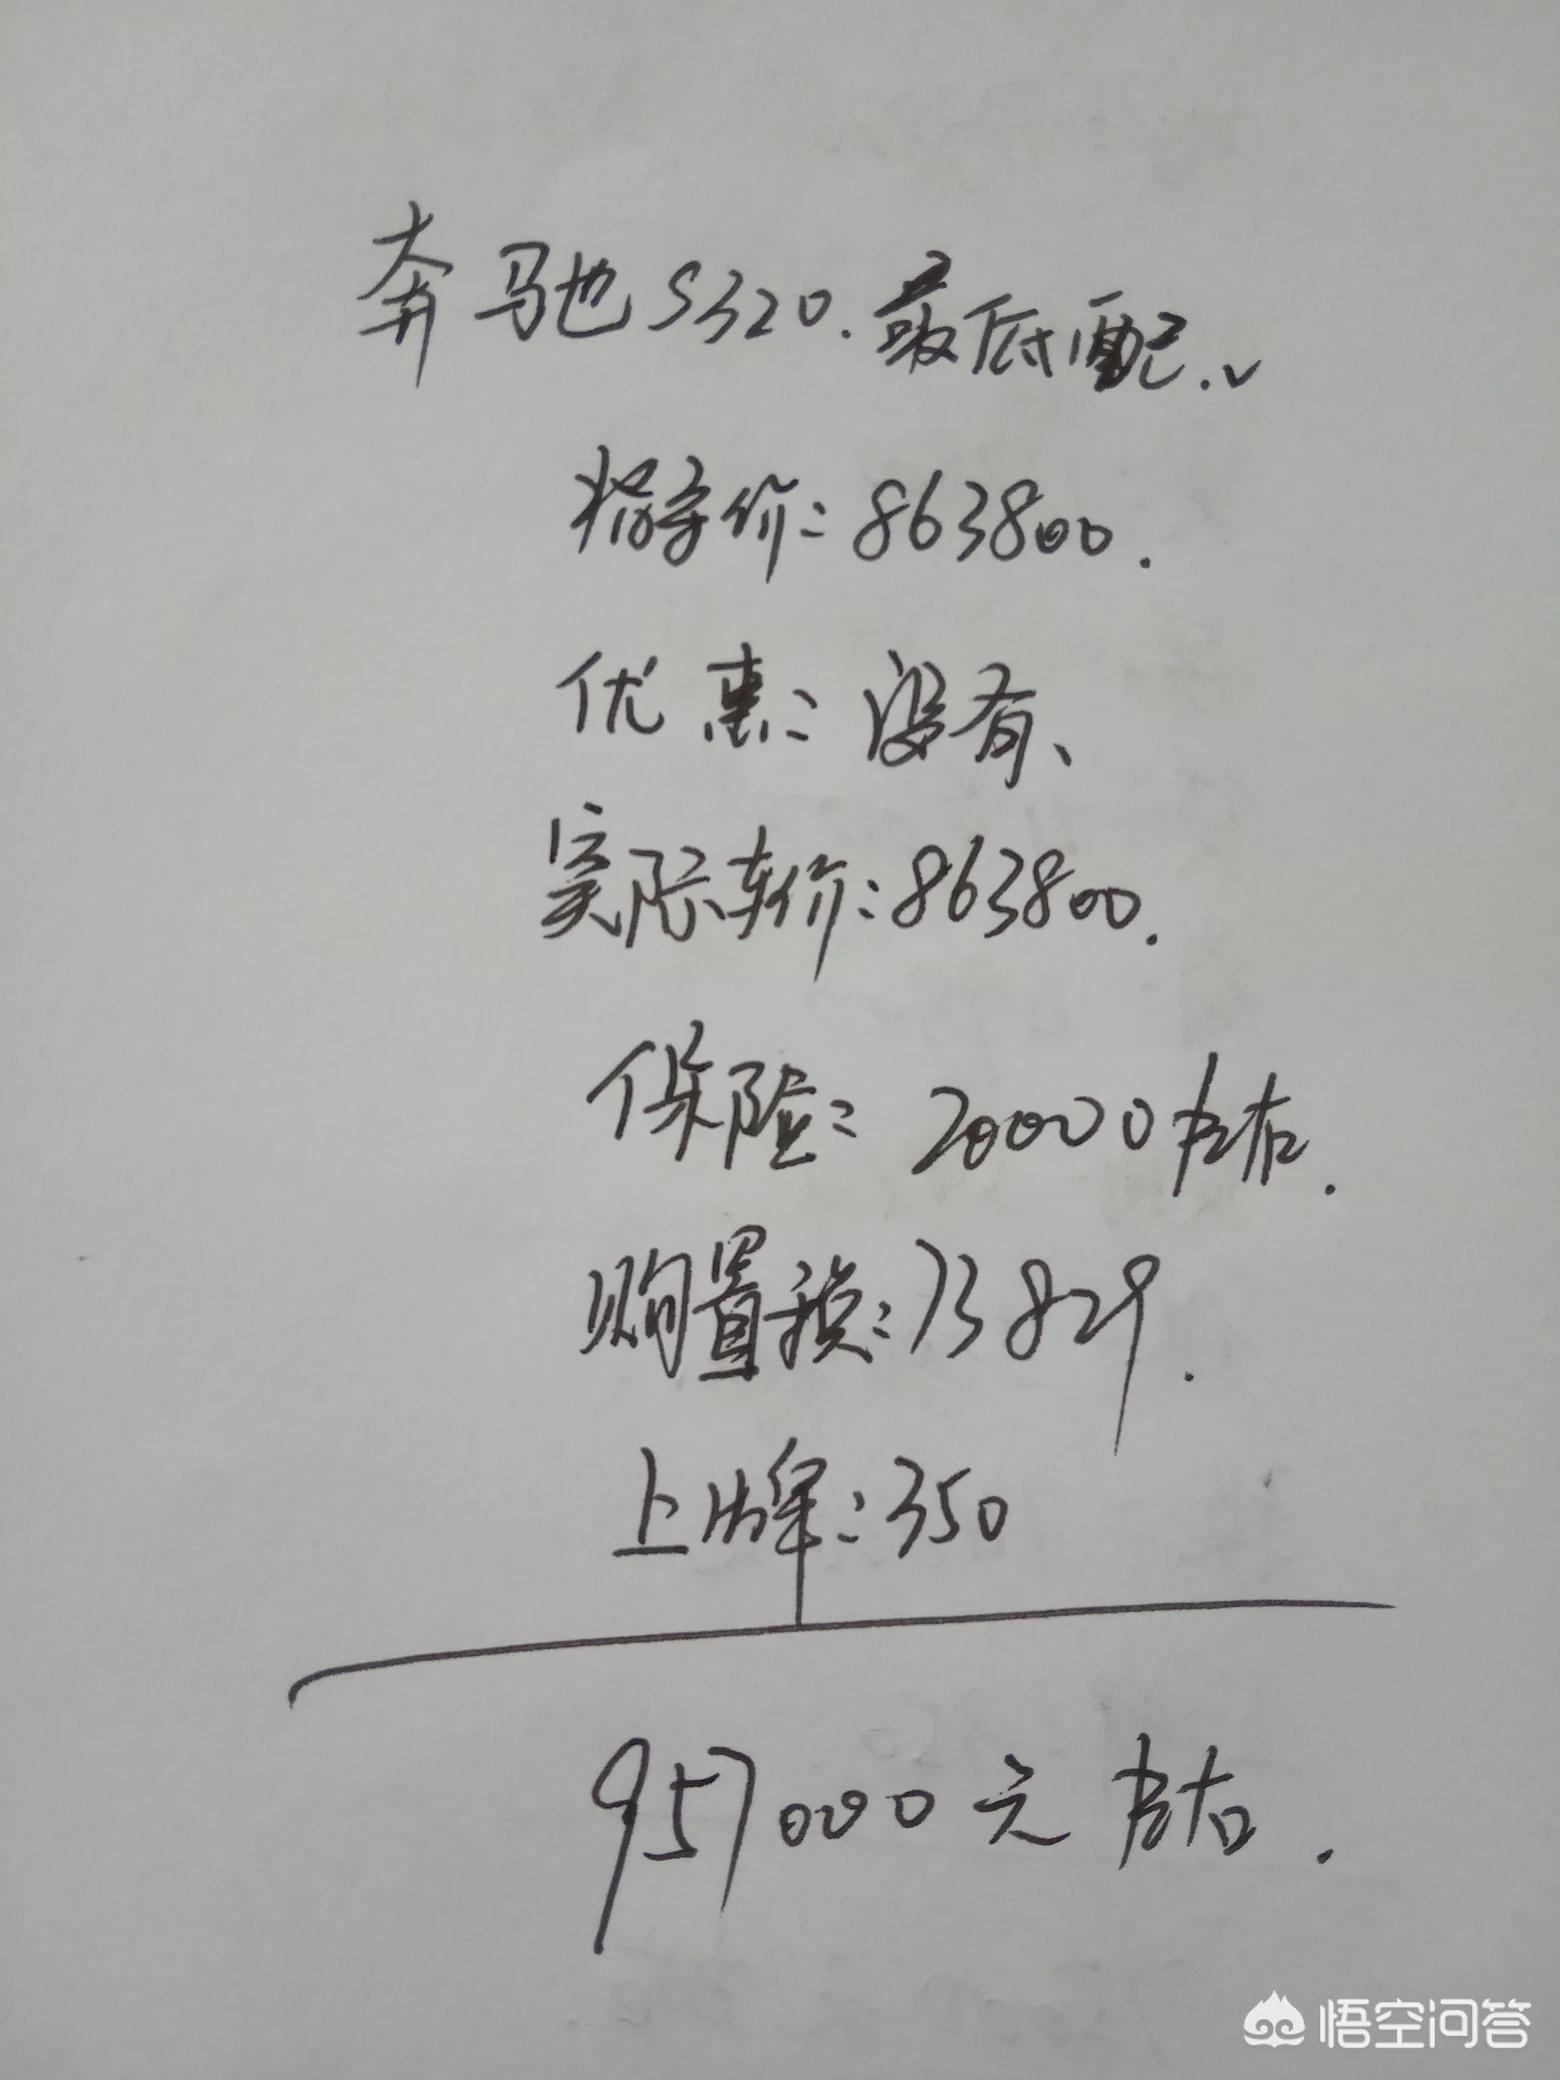 奔驰S320.最低配.
指导价:863800.
优惠:没有、
实际车价:863800.
保险:20000左右.
购置税:73829.
上牌:350
957000元左右.
悟空问答